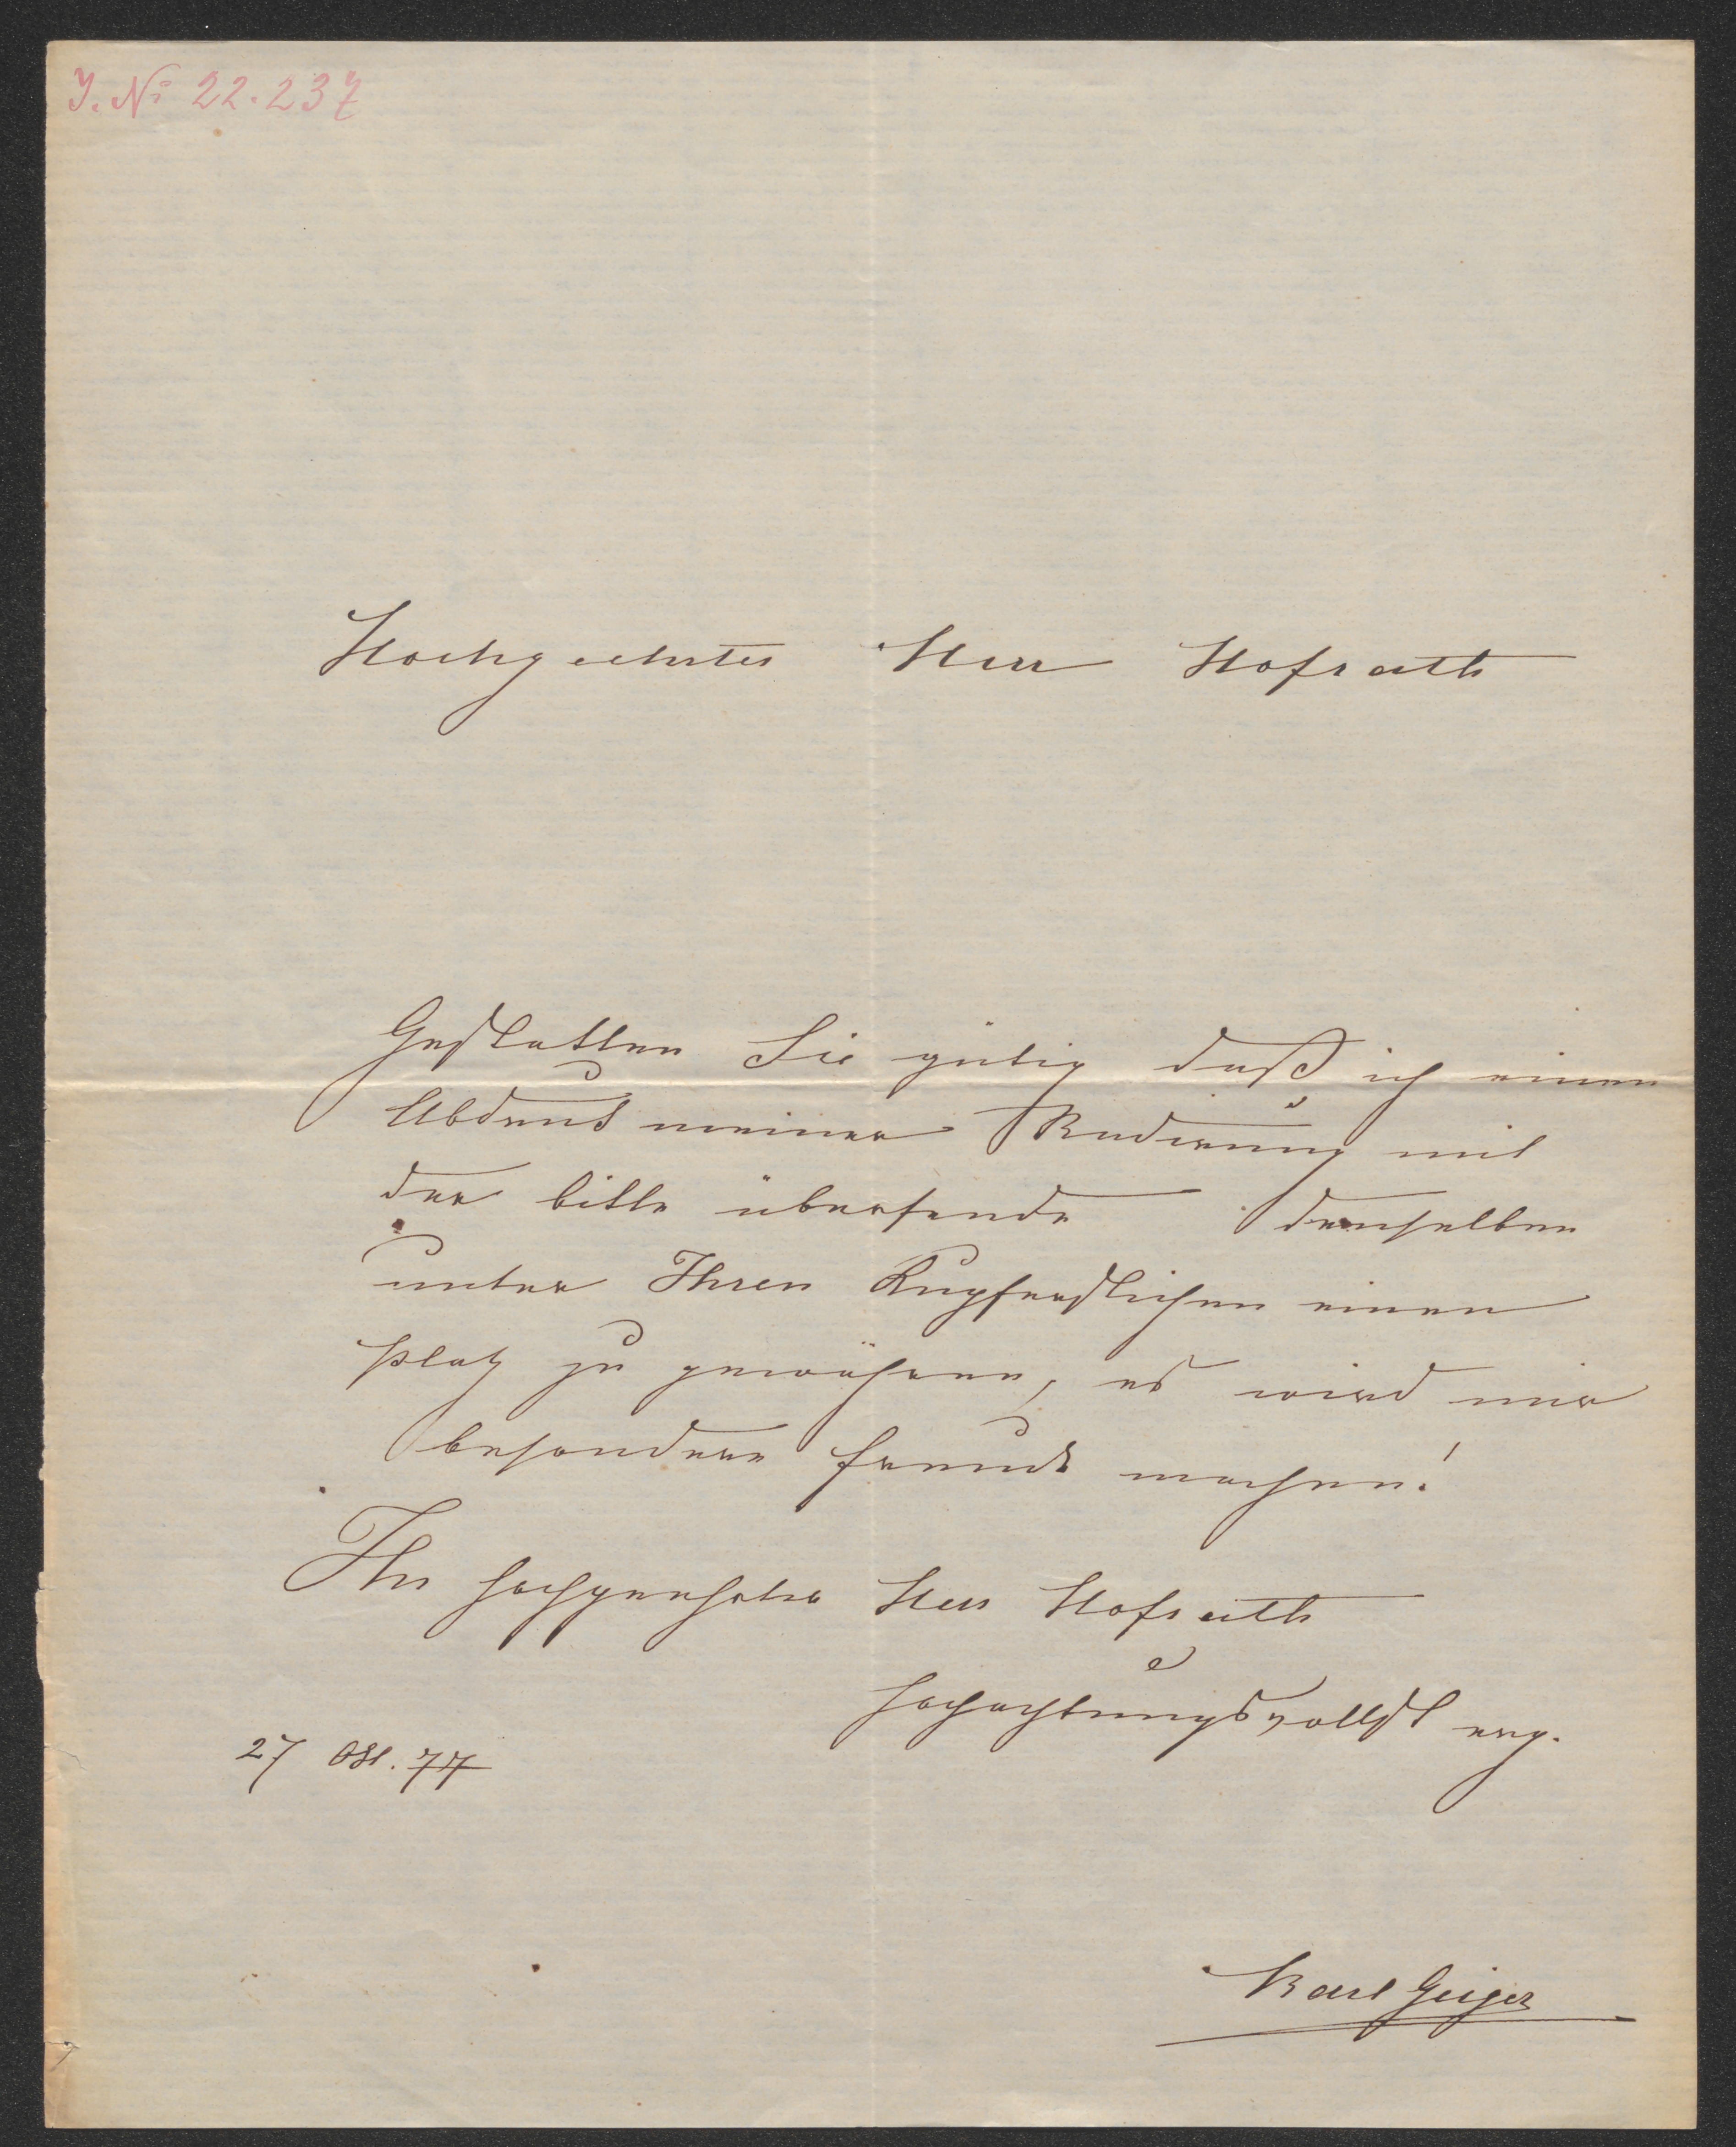 J. № 22.237
Hochgeehrter Herr Hofrath
Gestatten Sie gütig daß ich einen
Abdruck meiner Radirung mit
der bitte übersende denselben
unter Ihren Kupferstichen einen
Platz zu gewähren, es wird mir
besondere freude machen!
Ihr hochgeehrter Herr Hofrath
hochachtungsvollst erg.
27 Okt. 77
Karl Geiger